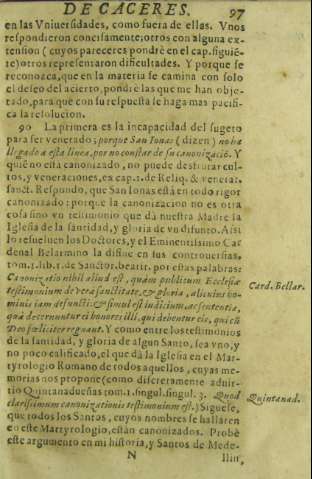 DE CACERES. 97
en las Vniuersidades, como fuera de ellas. Vnos
respondieron concisamente; otros con alguna ex-
tension (cuyos pareceres pondrè en el cap. siguiē-
te) otros representaron dificultades. Y porque se
reconozca, que en la materia se camina con solo
el deseo del acierto, pondrè las que me han obje-
tado, para que con su respuesta se haga mas pacifi-
ca la resolucion.
90 La primera es la incapacidad del sugeto
para ser venerado; porque San Ionas (dizen) no ha
llegado a esta linea, por no constar de su canonizaciō. Y
quiē no està canonizado, no puede desfrutar cul-
tos, y veneraciones, ex cap. 1. de Reliq. & venerat.
sanct. Respondo, que San Ionas està en todo rigor
canonizado: porque la canonizacion no es otra
cosa sino vn testimonio que dà nuestra Madre la
Iglesia de la santidad, y gloria de vn difunto. Assi
lo resueluen los Doctores, y el Eminentissimo Car
denal Belarmino la difine en sus controuersias,
tom. 1. lib. 1. de Sanctor. beatit. por estas palabras:
Canonizatio nihil aliud est, quàm publicum Ecclesiæ
testimonium de vera sanctitate, & gloria, alicuius ho-
minis iam defuncti: & simul est iudicium, ac sententia,
quà decernuntur ei honores illi, qui debentur eis, qui cū
Deo fœliciter regnant. Y como entre los testimonios
de la santidad, y gloria de algun Santo, sea vno, y
no poco calificado, el que dà la Iglesia en el Mar-
tyrologio Romano de todos aquellos, cuyas me-
morias nos propone (como discretamente aduir-
tio Quintanadueñas tom. 1. singul. singul. 3. Quod
clarissimum canonizationis testimonium est.) Siguese,
que todos los Santos, cuyos nombres se hallaren
en este Martyrologio, estàn canonizados. Probè
este argumento en mi historia, y Santos de Mede-
N llin,
Card. Bellar.
Quintanad.